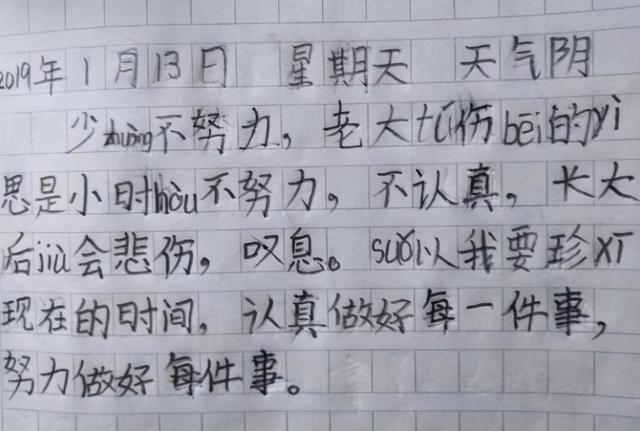 2019年1月13日 星期天 天气阴
少zhuàng不努力，老大tú伤bēi的yì
思是小时hòu不努力，不认真，长大
后jiù会悲伤，叹息。suǒ以我要珍xī
现在的时间，认真做好每一件事，
努力做好每件事。